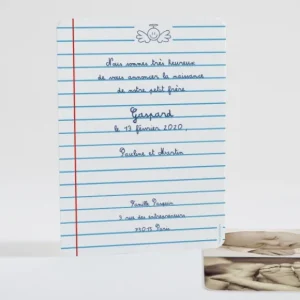 Nous sommes très heureux
de vous annoncer la naissance
de notre petit frère
Gaspard
le 13 février 2020,
Pauline et Martin
Famille Parquin
2 rue des entrepreneurs
75015 Paris